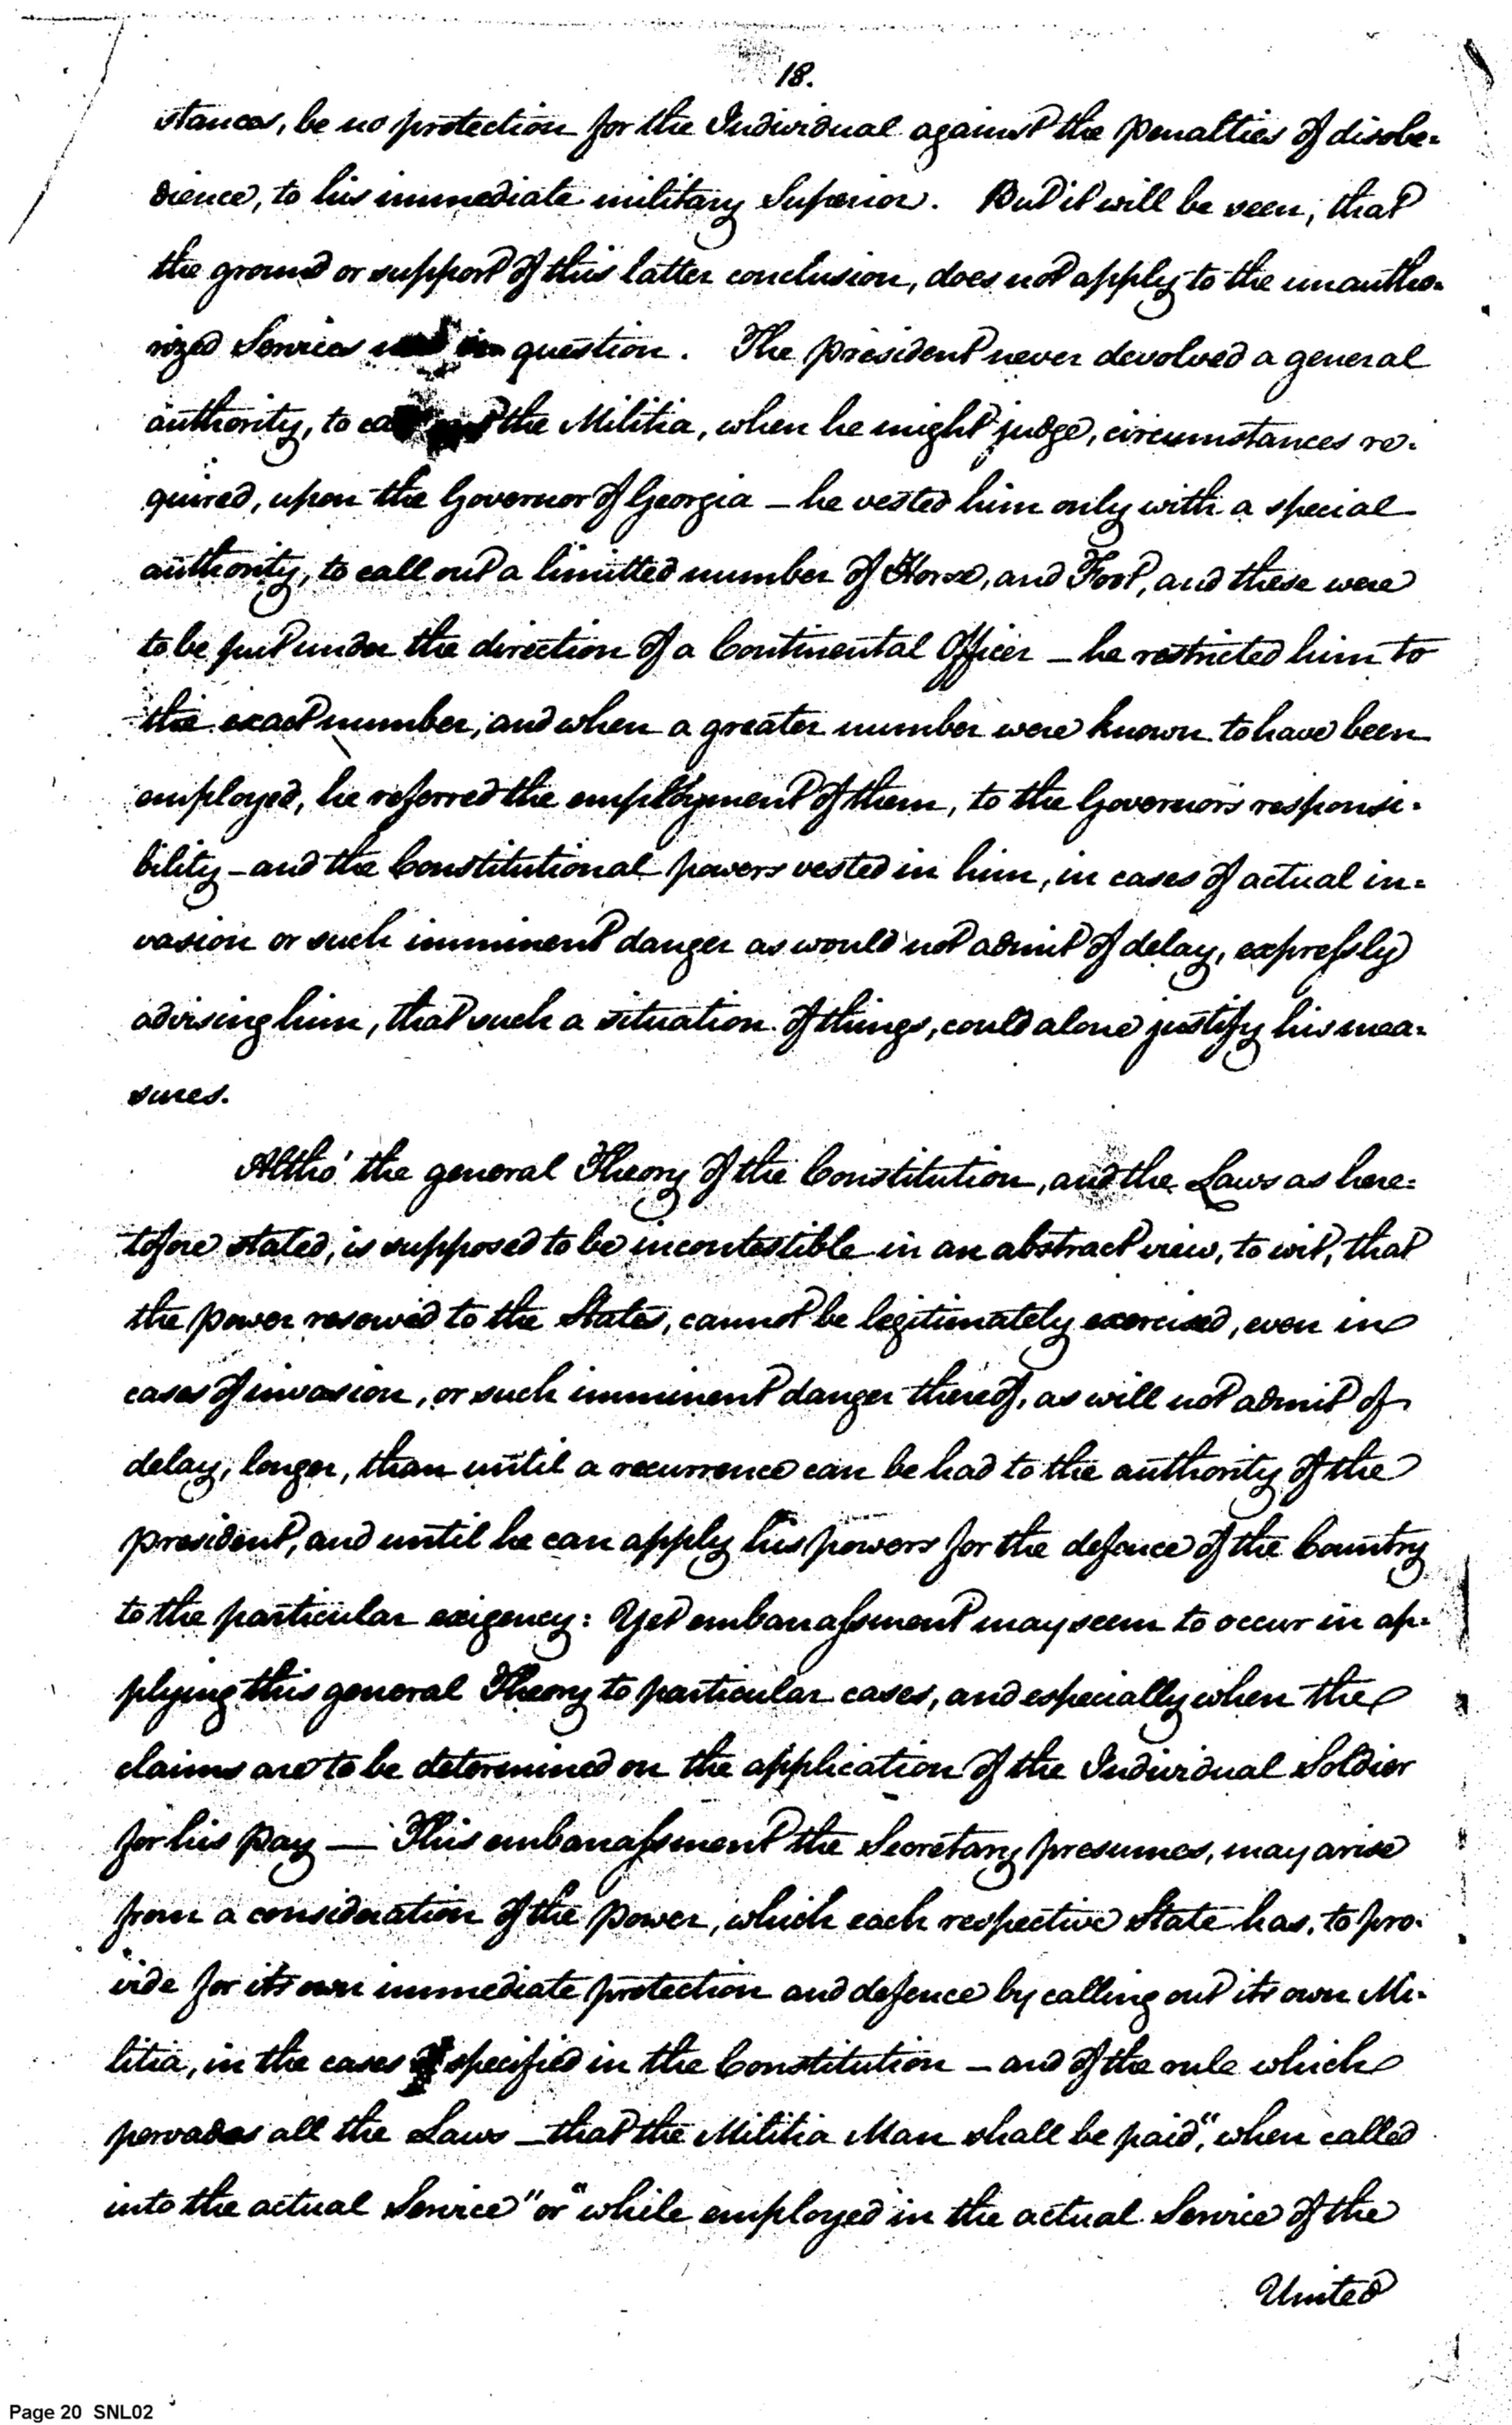 18.
stances, be no protection for the Individual against the Penalties of disobe=
dience, to his immediate military Superior. But it will be seen, that
the ground or support of this latter conclusion, does not apply to the unautho=
rized Services in question. The President never devolved a general
authority, to the Militia, when he might judge, circumstances re=
quired, upon the Governor of Georgia – he vested him only with a special
authority, to call out a limitted number of Horse, and Foot, and these were
to be put under the direction of a Continental Officer – he restricted him to
the exact number, and when a greater number were known to have been
employed, he referred the employment of them, to the Governors responsi=
bility – and the Constitutional powers vested in him, in cases of actual in=
vasion or such imminent danger as would not admit of delay, expressly
advising him, that such a situation of things, could alone justify his mea=
sures.
Altho' the general Theory of the Constitution, and the Laws as here=
tofore stated, is supposed to be incontestible in an abstract view, to wit, that
the power reserved to the States, cannot be legitimately exercised, even in
cases of invasion, or such imminent danger thereof, as will not admit of
delay, longer, than until a recurrence can be had to the authority of the
President, and until he can apply his powers for the defence of the Country
to the particular exigency: Yet embarrassment may seem to occur in ap=
plying this general Theory to particular cases, and especially when the
claims are to be determined on the application of the Individual Soldier
for his Pay — This embarrassment the Secretary presumes, may arise
from a consideration of the Power, which each respective State has, to pro=
vide for its own immediate protection and defence by calling out its own Mi=
litia, in the cases specified in the Constitution – and of the rule which
pervades all the Laws – that the Militia Man shall be paid, "when called
into the actual Service" or "while employed in the actual Service of the
United
Page 20 SNL02